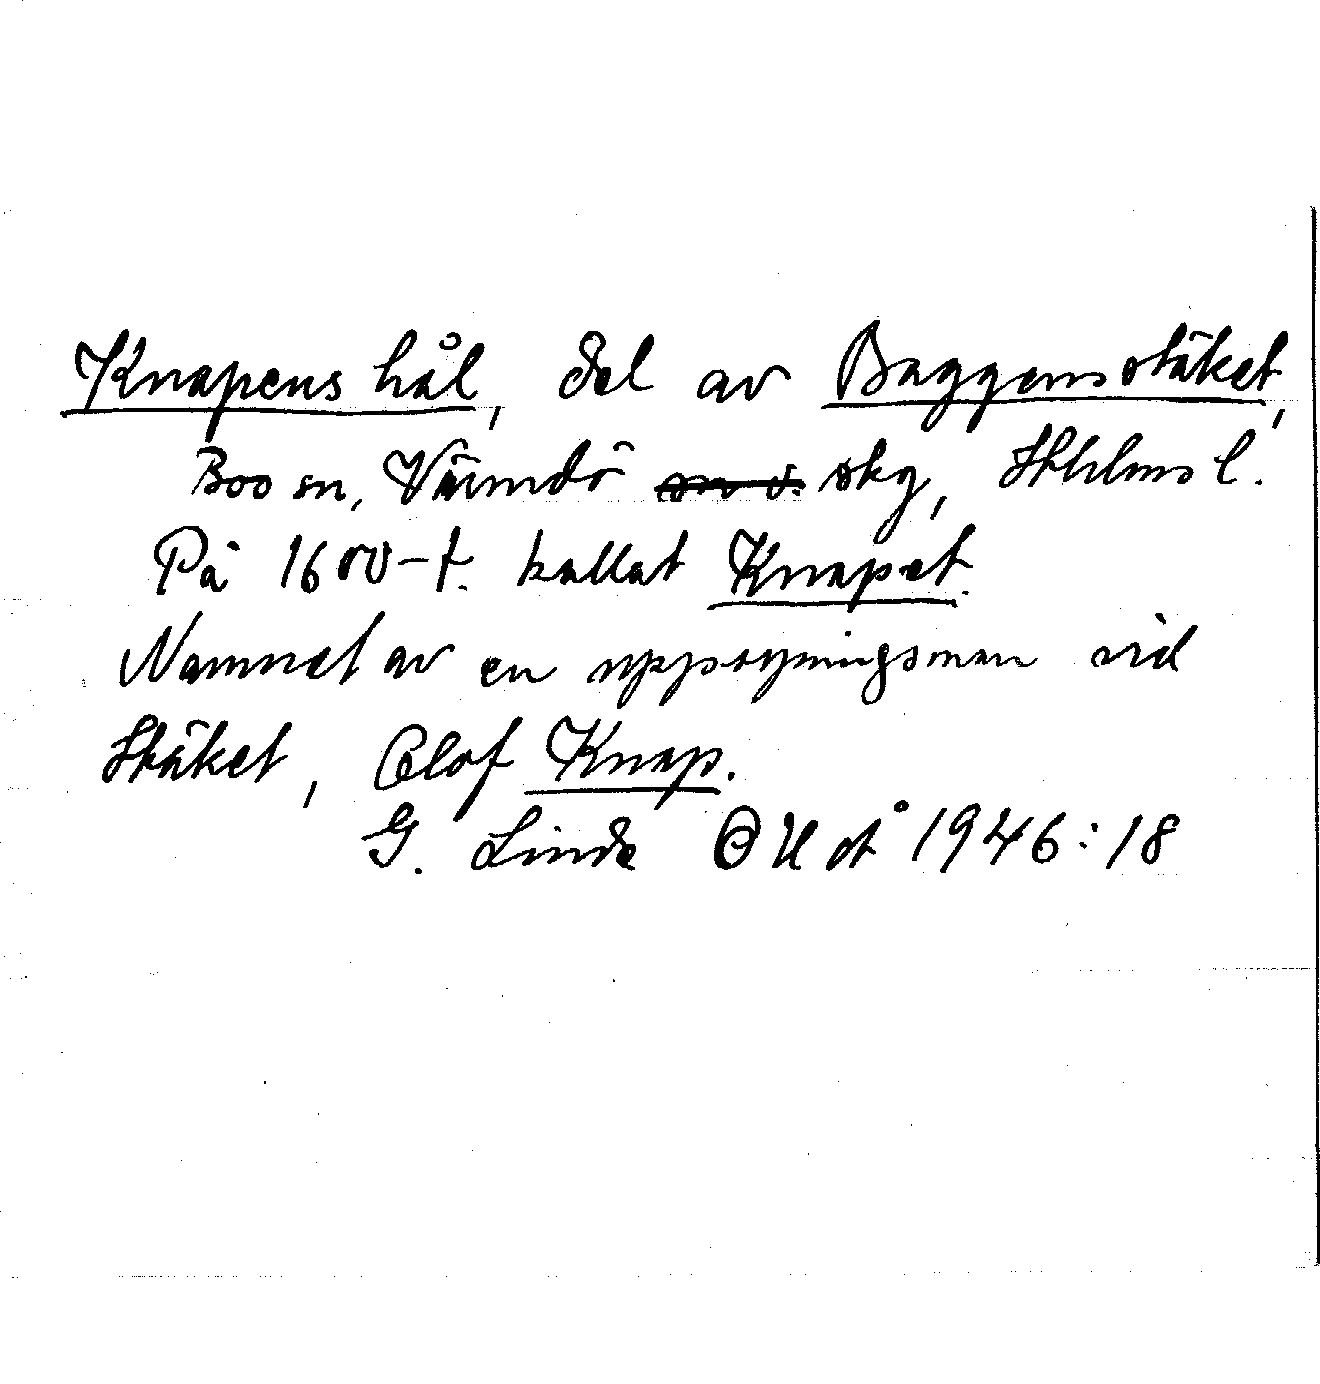 Knapens hål, del av Baggensstäket,
Boo sn, Värmdö skg, Sthlms l.
På 1600-t. kallat Knapet.
Namnet av en uppsyningsman vid
Stäket, Olof Knap.
G. Linde 1946:18